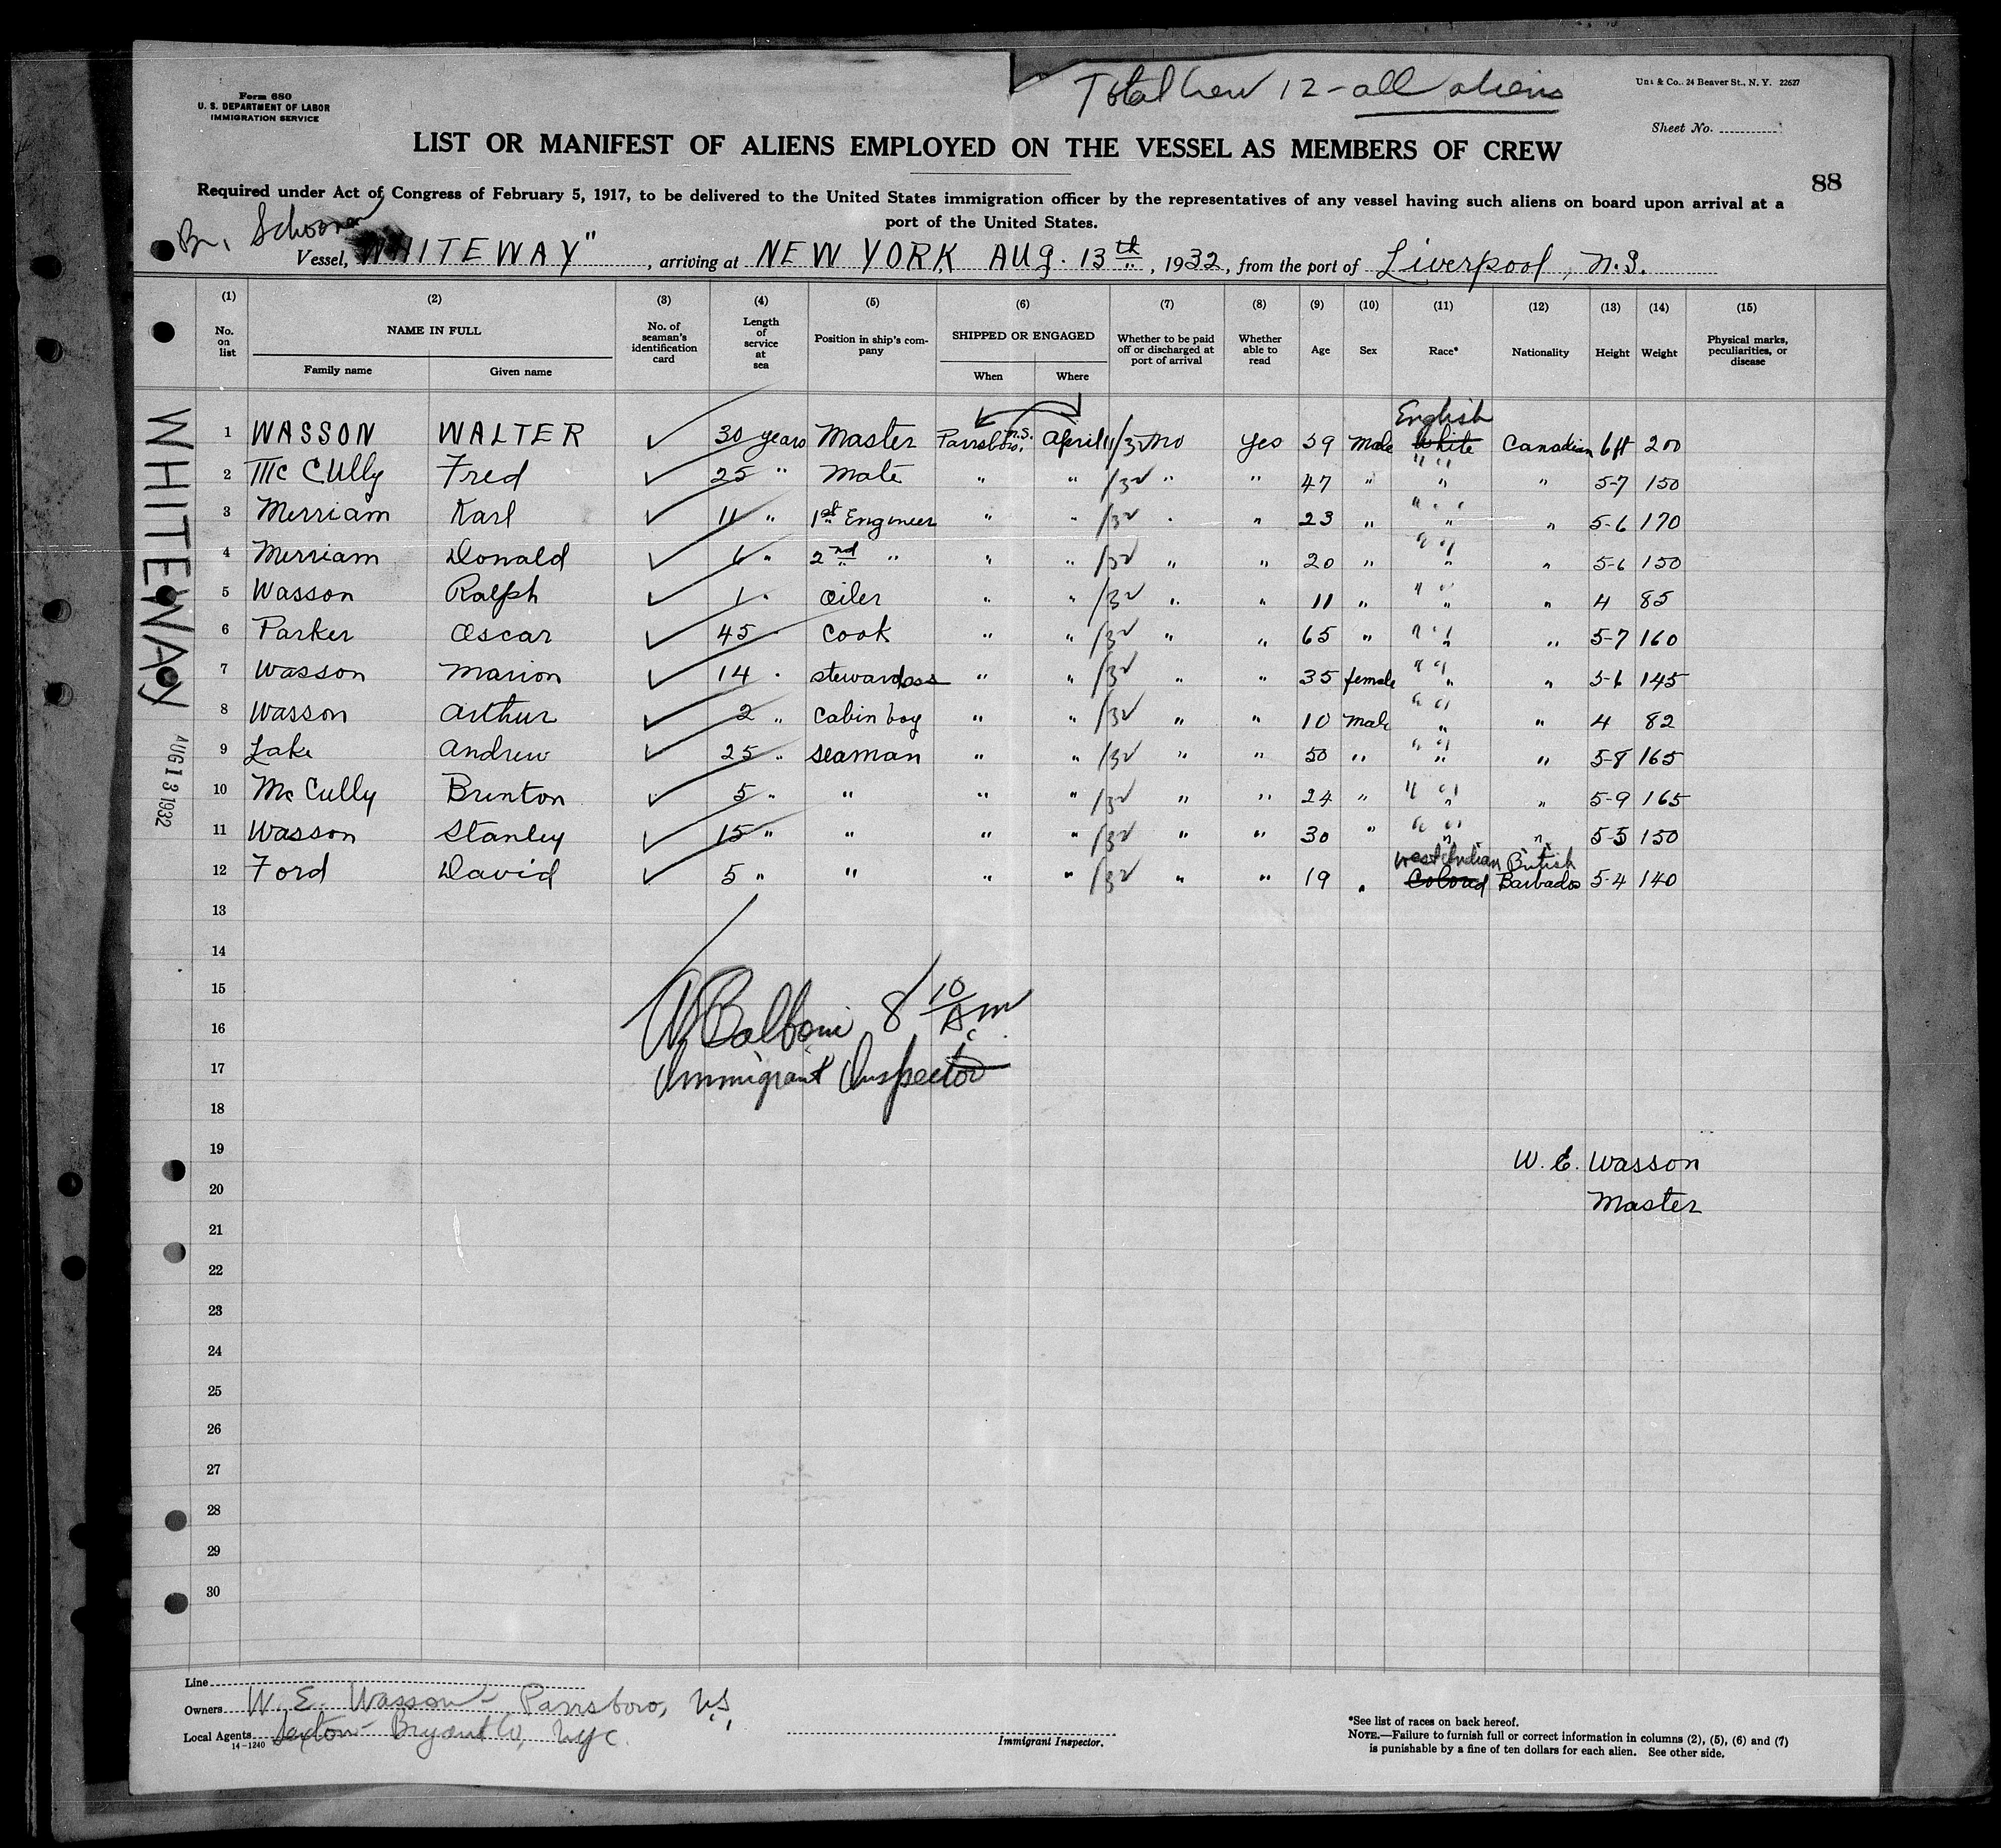 Total Crew 12 - all aliens
Form 680
U. S. DEPARTMENT OF LABOR
IMMIGRATION SERVICE
& Co., 24 Beaver St., N. Y. 22627
Sheet No.
LIST OR MANIFEST OF ALIENS EMPLOYED ON THE VESSEL AS MEMBERS OF CREW
88
Required under Act of Congress of February 5, 1917, to be delivered to the United States immigration officer by the representatives of any vessel having such aliens on board upon arrival at a
port of the United States.
Br. Schooner
Vessel, "WHITEWAY", arriving at NEW YORK AUG. 13th, 1932, from the port of Liverpool, N.S.
(1) (2) (3) (4) (5) (6) (7) (8) (9) (10) (11) (12) (13) (14) (15)
No. on list NAME IN FULL Family name Given name No. of seaman's identification card Length of service at sea Position in ship's company SHIPPED OR ENGAGED When Where Whether to be paid off or discharged at port of arrival Whether able to read Age Sex Race* Nationality Height Weight Physical marks, peculiarities, or disease
English
1 WASSON WALTER ✓ 30 years Master Parrsboro, N.S. April 11/32 No Yes 59 Male White Canadian 6 ft 200
2 McCully Fred ✓ 25 " Mate " " /32 " " 47 " " " 5-7 150
3 Merriam Karl ✓ 11 " 1st Engineer " " /32 " " 23 " " " 5-6 170
4 Merriam Donald ✓ 6 " 2nd " " " /32 " " 20 " " " 5-6 150
5 Wasson Ralph ✓ 1 " Oiler " " /32 " " 11 " " " 4 85
6 Parker Oscar ✓ 45 " Cook " " /32 " " 65 " " " 5-7 160
7 Wasson Marion ✓ 14 " stewardess " " /32 " " 35 female " " 5-6 145
8 Wasson Arthur ✓ 2 " Cabin boy " " /32 " " 10 Male " " 4 82
9 Lake Andrew ✓ 25 " seaman " " /32 " " 50 " " " 5-8 165
10 McCully Brinton ✓ 5 " " " " /32 " " 24 " " " 5-9 165
11 Wasson Stanley ✓ 15 " " " " /32 " " 30 " " " 5-5 150
West Indian British
12 Ford David ✓ 5 " " " " /32 " " 19 " Colored Barbados 5-4 140
13
14
15
16
17
18
19
20
21
22
23
24
25
26
27
28
29
30
Balboni 8 10/A.m
Immigrant Inspector
W. E. Wasson
Master
WHITEWAY
AUG 13 1932
Line
Owners W. E. Wasson - Parrsboro, N.S.
Local Agents Sexton - Bryant Co, NYC.
14-1240
Immigrant Inspector.
*See list of races on back hereof.
NOTE.—Failure to furnish full or correct information in columns (2), (5), (6) and (7)
is punishable by a fine of ten dollars for each alien. See other side.